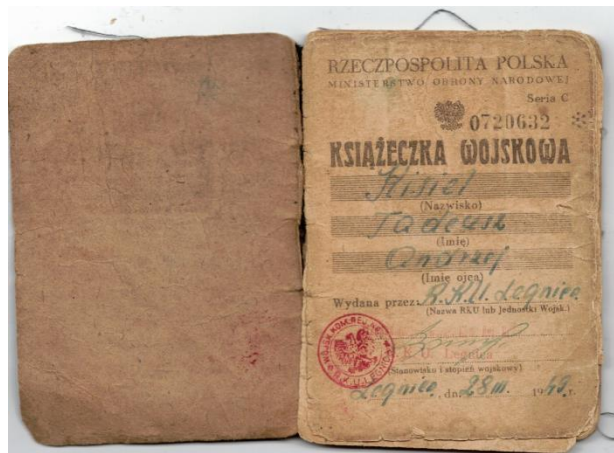 RZECZPOSPOLITA POLSKA
MINISTERSTWO OBRONY NARODOWEJ
Seria C
0720632
KSIĄŻECZKA WOJSKOWA
Kisiel
(Nazwisko)
Tadeusz
(Imię)
Andrzej
(Imię ojca)
Wydana przez: R.K.U. Legnica
(Nazwa RKU lub Jednostki Wojsk.)
R.K.U. Legnica
(Stanowisko i stopień wojskowy)
Legnica, dn. 28 III. 1949 r.